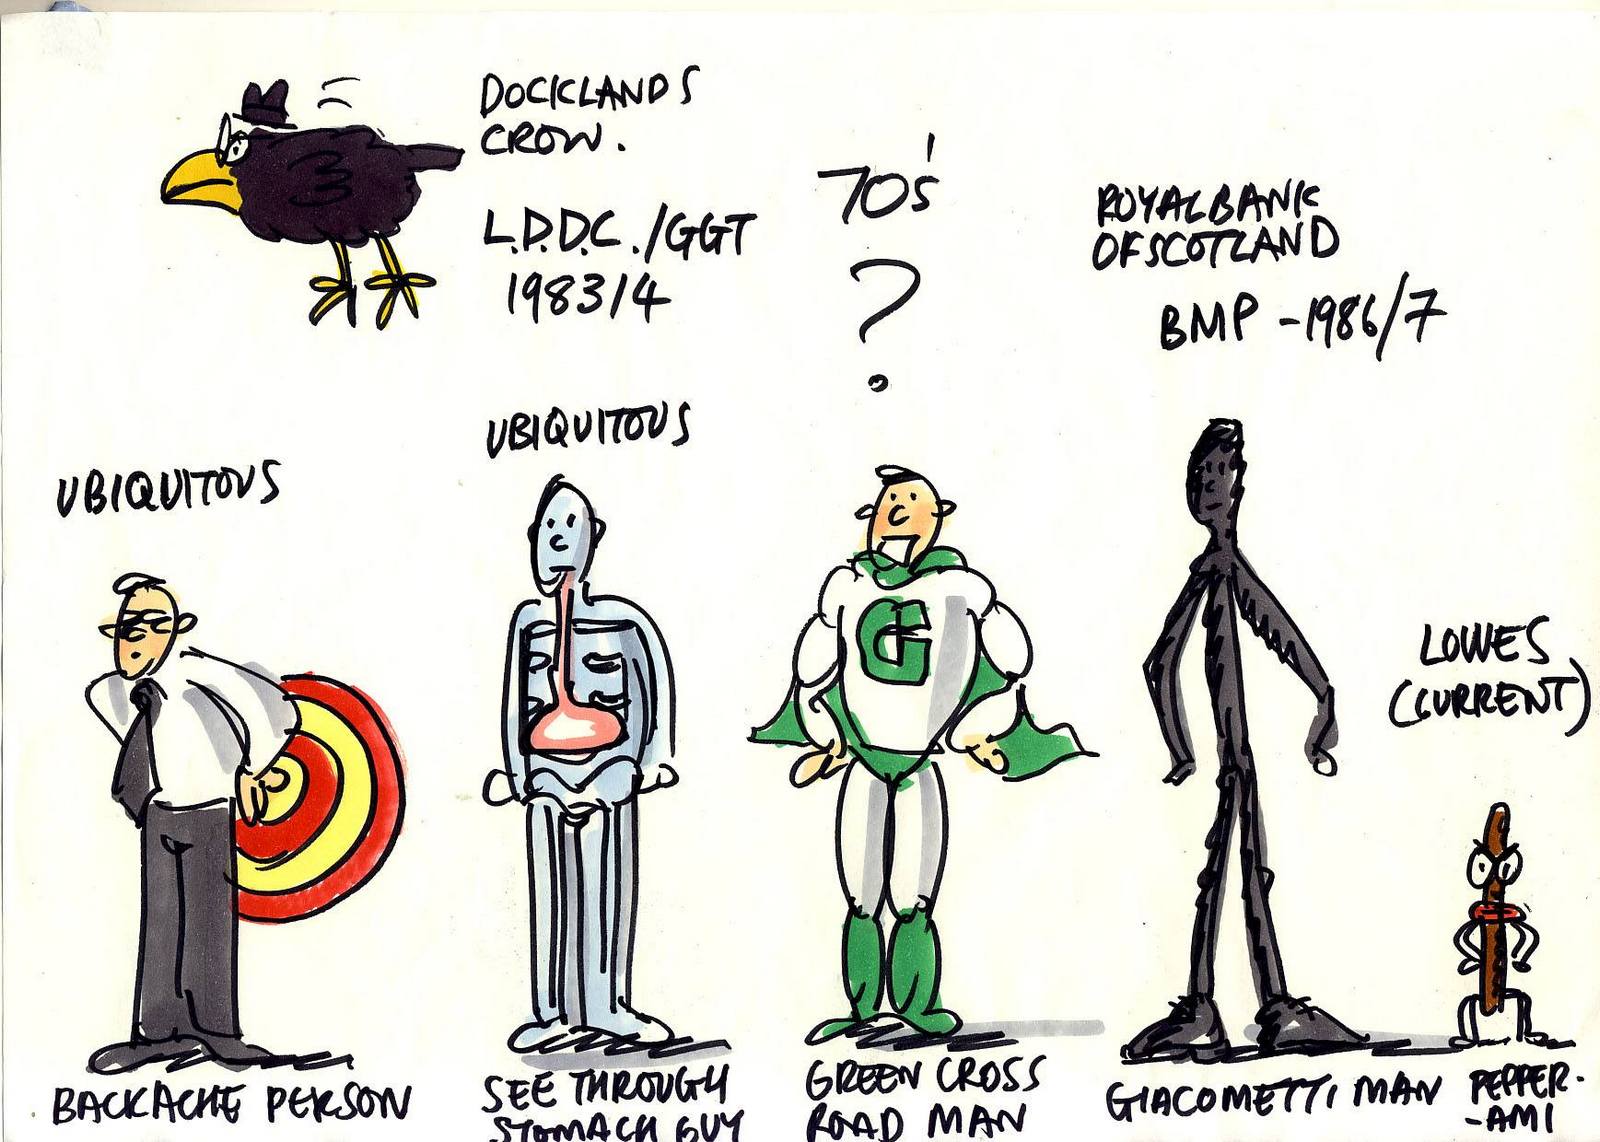 DOCKLANDS
CROW.
L.D.D.C./GGT
1983/4
70's
?
ROYAL BANK
OF SCOTLAND
BMP - 1986/7
UBIQUITOUS
UBIQUITOUS
G
LOWES
(CURRENT)
BACKACHE PERSON
SEE THROUGH
STOMACH GUY
GREEN CROSS
ROAD MAN
GIACOMETTI MAN
PEPPER-
-AMI